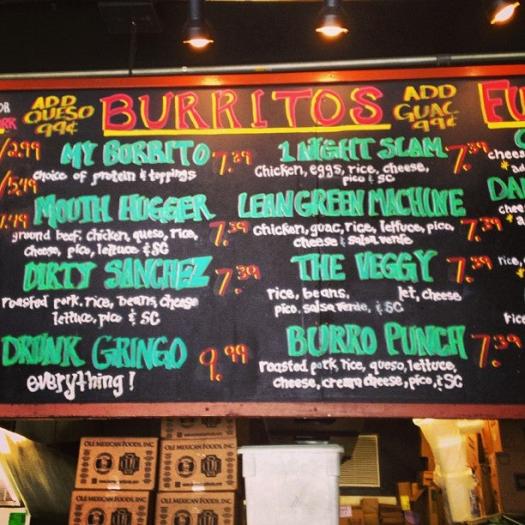 OR
ADD
QUESO
99¢
BURRITOS
ADD
GUAC
99¢
FU
2.99
MY BORRITO 7.29
choice of protein & toppings
1 NIGHT SLAM 7.39
Chicken, eggs, rice, cheese,
pico & SC
MOUTH HUGGER 7.39
ground beef, chicken, queso, rice,
cheese, pico, lettuce & SC
LEAN GREEN MACHINE
chicken, guac, rice, lettuce, pico,
cheese & salsa verde
DIRTY SANCHEZ 7.39
roasted pork, rice, beans, cheese
lettuce, pico & SC
THE VEGGY 7.39
rice, beans, let, cheese
pico, salsa verde, & SC
DRUNK GRINGO 9.99
everything!
BURRO PUNCH 7.39
roasted pork, rice, queso, lettuce,
cheese, cream cheese, pico, & SC
OLE MEXICAN FOODS, INC.
OLE MEXICAN FOODS, INC.
OLE MEXICAN FOODS, INC.